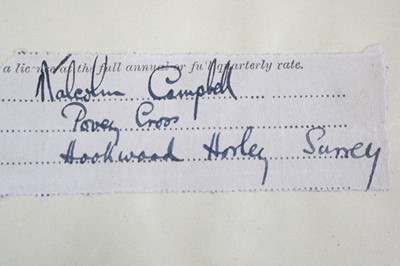 a licence at the full annual or full quarterly rate.
Malcolm Campbell
Povey Cross
Hookwood Horley Surrey